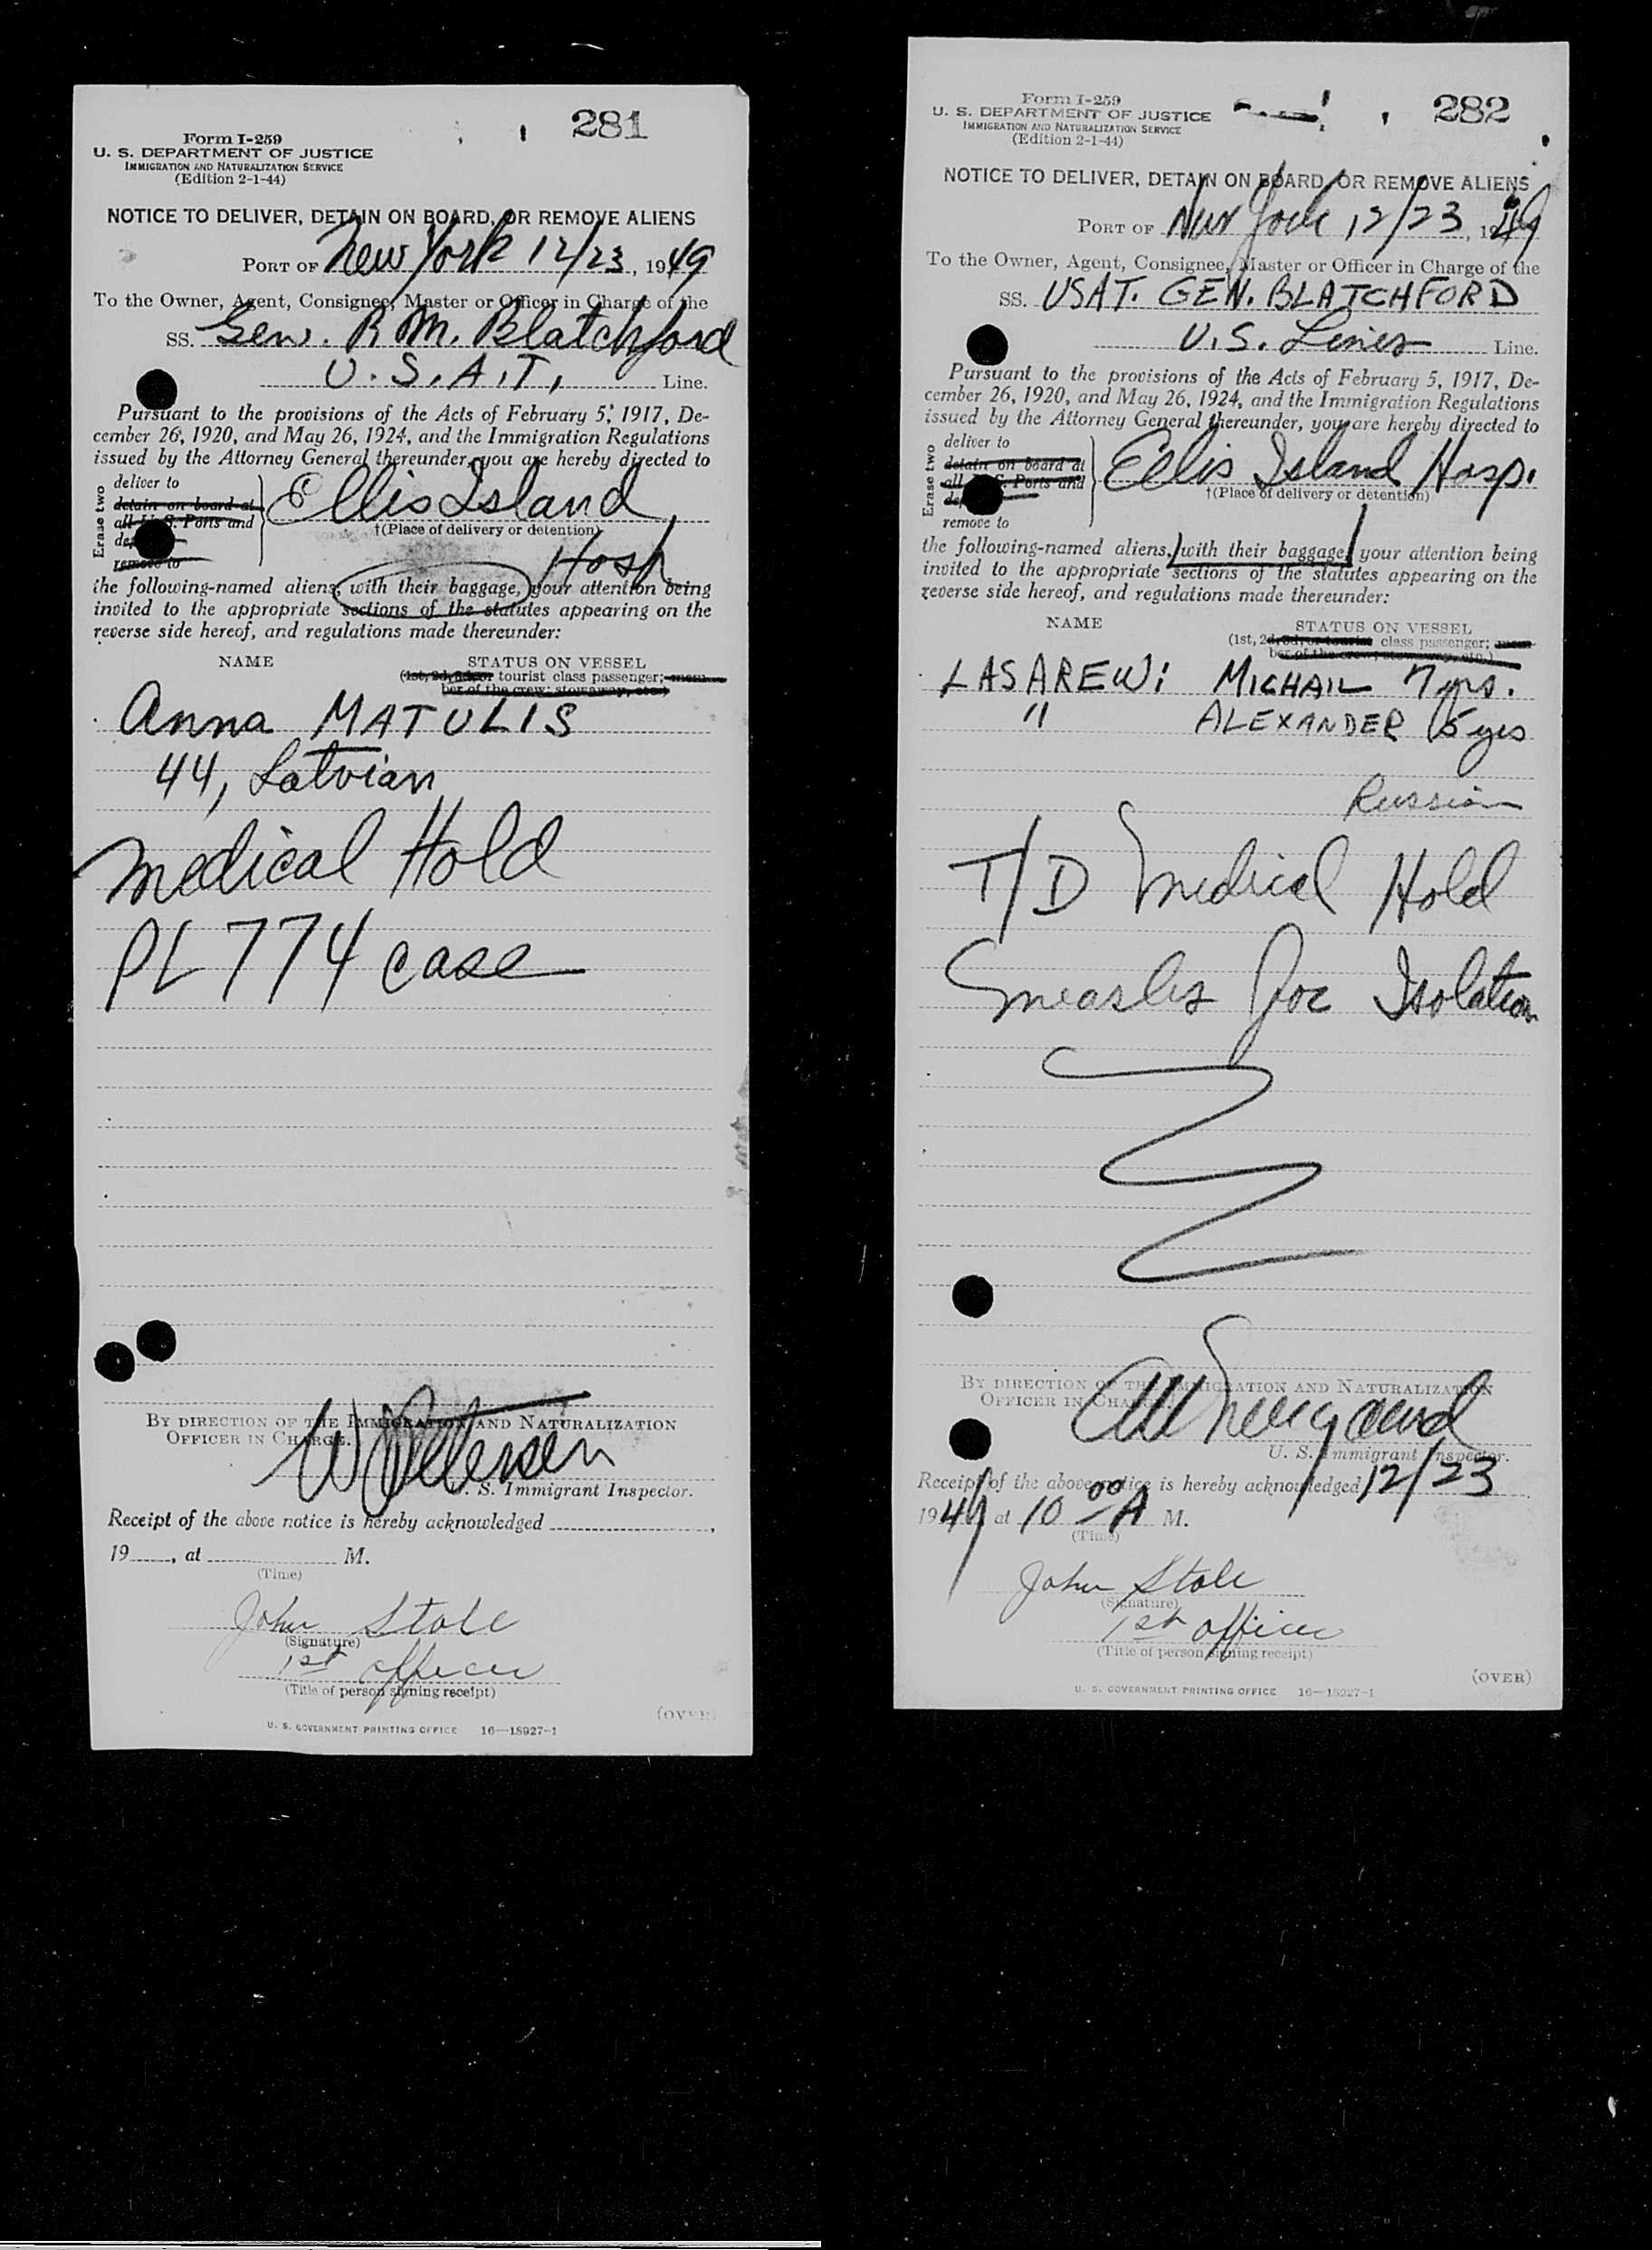 281
Form I-259
U. S. DEPARTMENT OF JUSTICE
IMMIGRATION AND NATURALIZATION SERVICE
(Edition 2-1-44)
NOTICE TO DELIVER, DETAIN ON BOARD, OR REMOVE ALIENS
PORT OF New York 12/23, 1949
To the Owner, Agent, Consignee, Master or Officer in Charge of the
SS. Gen. R. M. Blatchford
U.S.A.T. Line.
Pursuant to the provisions of the Acts of February 5, 1917, De-
cember 26, 1920, and May 26, 1924, and the Immigration Regulations
issued by the Attorney General thereunder, you are hereby directed to
Erase two
deliver to
detain on board at
all U. S. Ports and
remove to
Ellis Island
†(Place of delivery or detention)
Hosp
the following-named aliens, with their baggage, your attention being
invited to the appropriate sections of the statutes appearing on the
reverse side hereof, and regulations made thereunder:
NAME STATUS ON VESSEL
(1st, 2d, 3d, or tourist class passenger; mem-
ber of the crew; stowaway, etc.)
Anna MATULIS
44, Latvian
Medical Hold
PL 774 case
BY DIRECTION OF THE IMMIGRATION AND NATURALIZATION
OFFICER IN CHARGE.
Petersen
U. S. Immigrant Inspector.
Receipt of the above notice is hereby acknowledged
19 , at M.
(Time)
John Stole
(Signature)
1st officer
(Title of person signing receipt)
(OVER)
U. S. GOVERNMENT PRINTING OFFICE 16—18927-1
282
Form I-259
U. S. DEPARTMENT OF JUSTICE
IMMIGRATION AND NATURALIZATION SERVICE
(Edition 2-1-44)
NOTICE TO DELIVER, DETAIN ON BOARD, OR REMOVE ALIENS
PORT OF New York 12/23, 1949
To the Owner, Agent, Consignee, Master or Officer in Charge of the
SS. USAT. GEN. BLATCHFORD
U.S. Lines Line.
Pursuant to the provisions of the Acts of February 5, 1917, De-
cember 26, 1920, and May 26, 1924, and the Immigration Regulations
issued by the Attorney General thereunder, you are hereby directed to
Erase two
deliver to
detain on board at
all U. S. Ports and
remove to
Ellis Island Hosp.
†(Place of delivery or detention)
the following-named aliens, with their baggage, your attention being
invited to the appropriate sections of the statutes appearing on the
reverse side hereof, and regulations made thereunder:
NAME STATUS ON VESSEL
(1st, 2d, 3d, or tourist class passenger; mem-
ber of the crew; stowaway, etc.)
LASAREW: MICHAIL 7 yrs.
" ALEXANDER 5 yrs
Russian
T/D Medical Hold
Measles for Isolation
BY DIRECTION OF THE IMMIGRATION AND NATURALIZATION
OFFICER IN CHARGE.
U. S. Immigrant Inspector.
Receipt of the above notice is hereby acknowledged 12/23
1949 at 10 00 A M.
(Time)
John Stole
(Signature)
1st officer
(Title of person signing receipt)
(OVER)
U. S. GOVERNMENT PRINTING OFFICE 16—18927-1